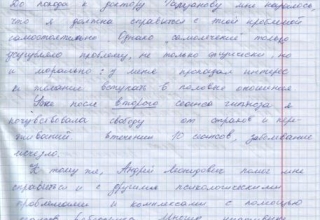 До похода к доктору мне казалось,
что я должна справиться с этой проблемой
самостоятельно. Однако "самолечение" только
усугубляло проблему, не только физически но
и морально: у меня пропадал интерес
и желание вступать в половые отношения
Уже после второго сеанса гипноза я
почувствовала свободу от страхов и пере-
живаний в течении 10 сеансов, заболевание
исчезло.
К тому же, Андрей помог мне
справиться и с другими психологическими
проблемами и комплексами с помощью